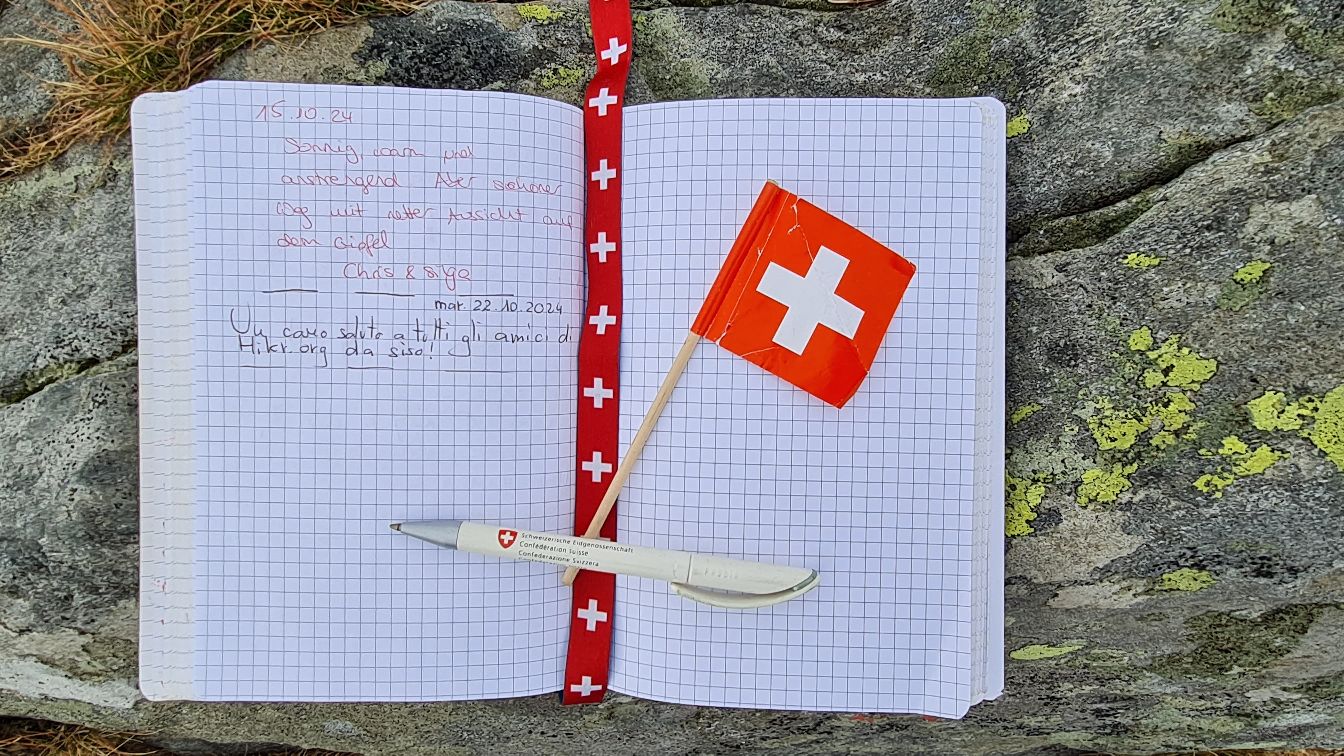 15.10.24
Sonnig, warm und
anstrengend. Aber schöner
Weg mit netter Aussicht auf
dem Gipfel
Chris & Silga
mar. 22.10.2024
Un caro saluto a tutti gli amici di
Hikr.org da siso!
Schweizerische Eidgenossenschaft
Confédération suisse
Confederazione Svizzera